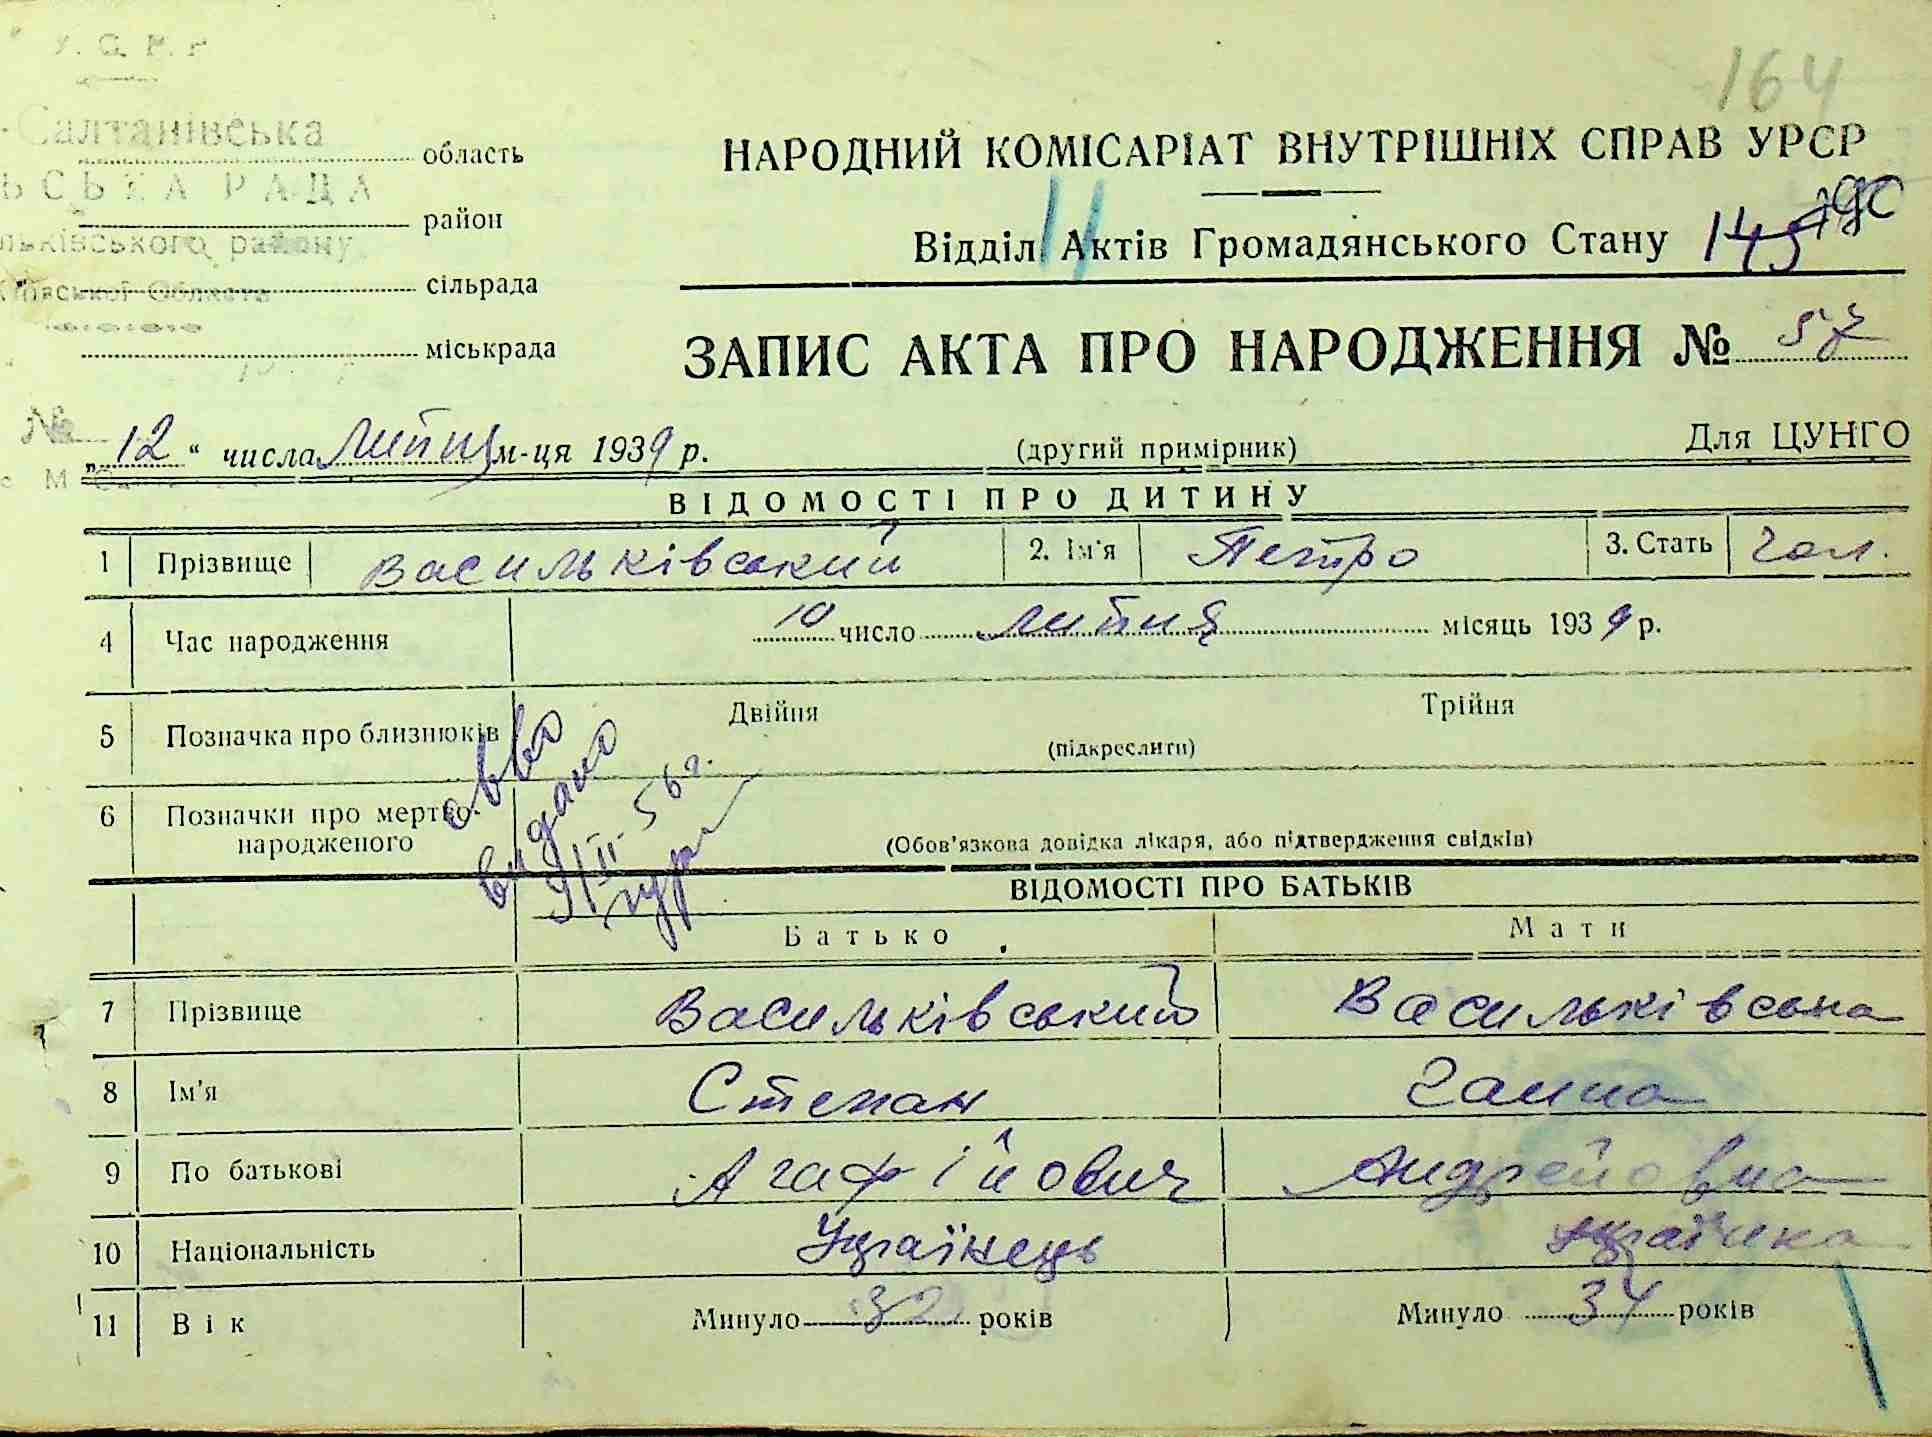 У. С. Р. Р
164
Салтанівська
область
НАРОДНИЙ КОМІСАРІАТ ВНУТРІШНІХ СПРАВ УРСР
ЬСЬКА РАДА
район
11
Відділ Актів Громадянського Стану 145
льківського району
сільрада
Області
міськрада
ЗАПИС АКТА ПРО НАРОДЖЕННЯ № 57
№
„12“ числа липня м-ця 1939 р.
(другий примірник)
Для ЦУНГО
ВІДОМОСТІ ПРО ДИТИНУ
1 Прізвище Васильківський 2. Ім'я Петро 3. Стать чол.
4 Час народження 10 число липня місяць 1939 р.
5 Позначка про близнюків Двійня Трійня
(підкреслити)
6 Позначки про мертво-
народженого
(Обов'язкова довідка лікаря, або підтвердження свідків)
с вво
видано
9/II-56 г.
ВІДОМОСТІ ПРО БАТЬКІВ
Батько Мати
7 Прізвище Васильківський Васильківська
8 Ім'я Степан Ганна
9 По батькові Агафійович Андрейовна
10 Національність Українець Українка
11 Вік Минуло 32 років Минуло 34 років